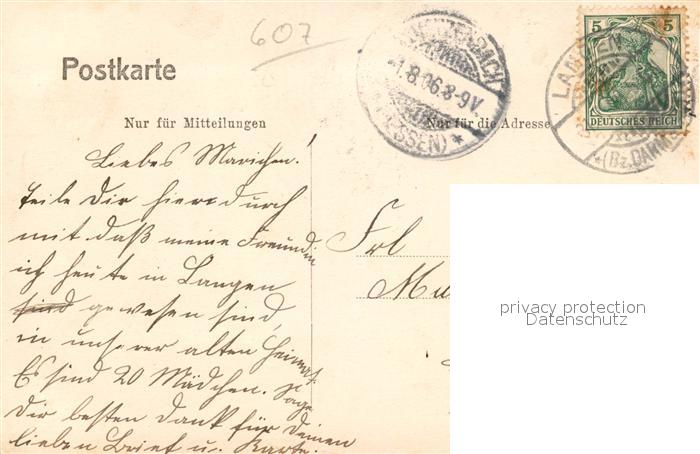 607
Postkarte
Nur für Mitteilungen
Nur für die Adresse
1.8.06.8-9V
(HESSEN)*
5 5
DEUTSCHES REICH
LANGEN
*(Bz.DARM
Liebes Mariechen!
Teile Dir hierdurch
mit daß meine Freundin
ich heute in Langen
sind gewesen sind,
in unserer alten Heimat.
Es sind 20 Mädchen. Sage
Dir besten Dank für Deinen
lieben Brief u. Karte.
Frl
Mu
privacy protection
Datenschutz